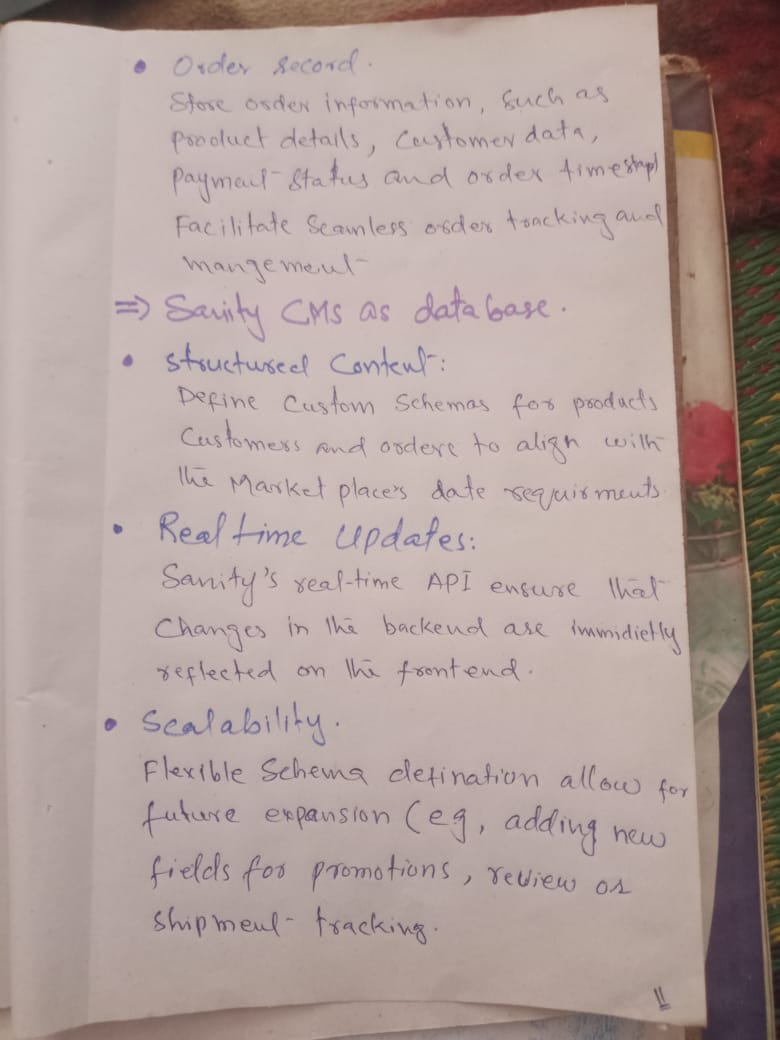 • Order record.
Store order information, such as
product details, Customer data,
payment status and order timestap
Facilitate Seamless order tracking and
mangement
=> Sanity CMS as database.
• Structured Content:
Define Custom Schemas for products
Customers and orders to align with
the Market place's date requirments.
• Real time Updates:
Sanity's real-time API ensure that
Changes in the backend are immidietly
reflected on the frontend.
• Scalability.
Flexible Schema defination allow for
future expansion (eg, adding new
fields for promotions, review or
shipment tracking.
11